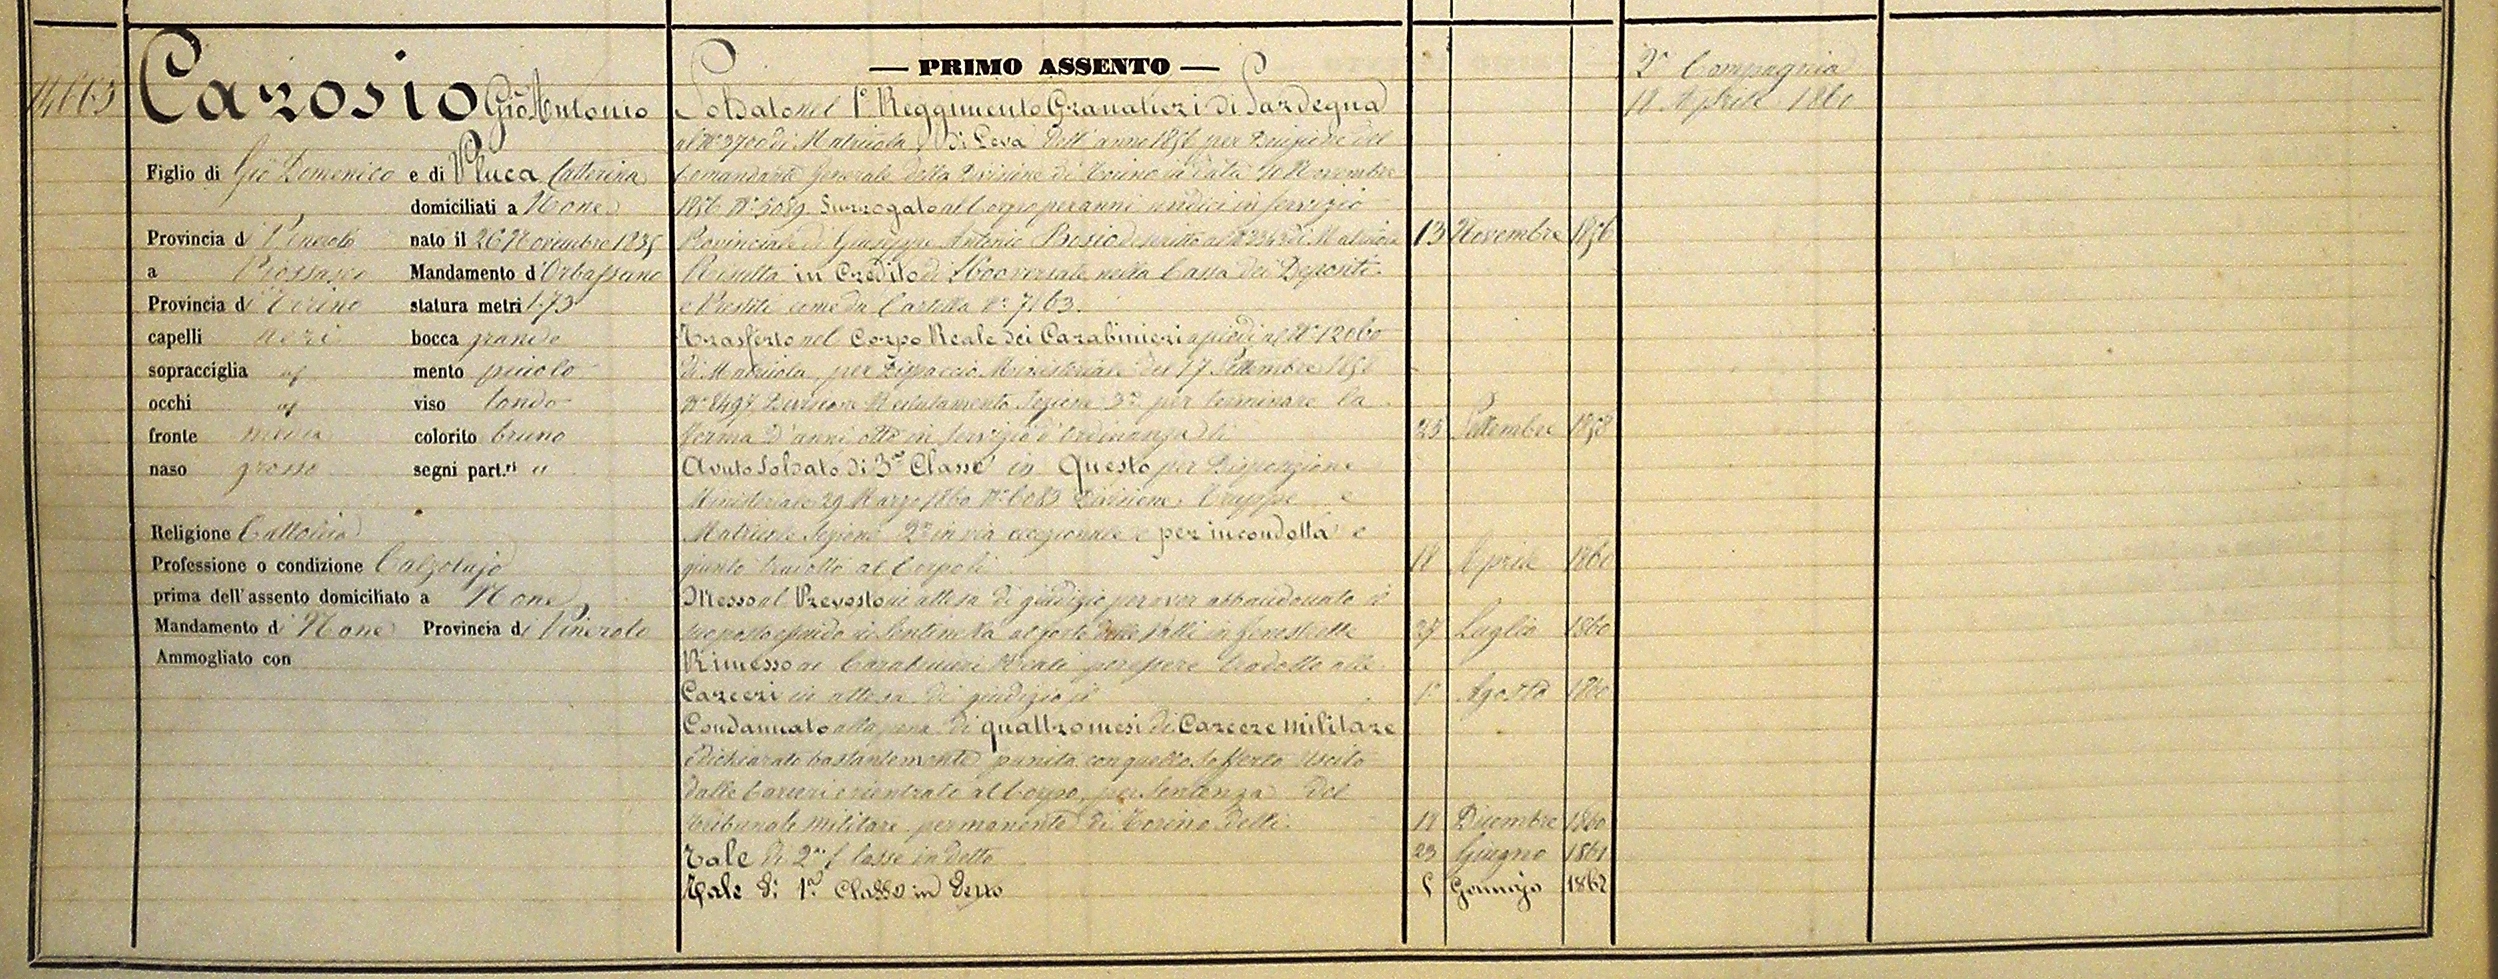 14663
Carosio Gio Antonio
Figlio di Gio Domenico e di Pluca Catterina
domiciliati a None
Provincia di Pinerolo nato il 26 Novembre 1835
a Piossasco Mandamento d'Orbassano
Provincia di Torino statura metri 1.73
capelli neri bocca grande
sopracciglia id mento piccolo
occhi id viso tondo
fronte media colorito bruno
naso grosso segni part.ri "
Religione Cattolica
Professione o condizione Calzolajo
prima dell'assento domiciliato a None
Mandamento di None Provincia di Pinerolo
Ammogliato con
— PRIMO ASSENTO —
Soldato nel 1° Reggimento Granatieri di Sardegna
al N° 3700 di Matricola, di Leva dell'anno 1856 per Decisione del
Comandante Generale della Divisione di Torino in data Novembre
1856 N° 5089. Surrogato al Corpo per anni undici in servizio
Provinciale di Giuseppe Antonio Bosio descritto al N° 2343 di Matricola 13 Novembre 1856
Risulta in Credito di £600 versate nella Cassa dei Depositi
e Prestiti come da Cartella N° 7163.
Trasferto nel Corpo Reale dei Carabinieri a piedi al N° 12060
di Matricola, per Dispaccio Ministeriale del 17 Settembre 1858
N° 8497 Divisione Reclutamento Sezione 3a per terminare la
ferma d'anni otto in servizio d'ordinanza li 25 Settembre 1858
Avuto Soldato di 3a Classe in Questo per Disposizione
Ministeriale 29 Marzo 1860 N° 6083 Divisione Truppe e
Matricole Sezione 2a in via eccezionale e per incondotta e
giunto tradotto al Corpo li 18 Aprile 1860
Messo al Prevosto in attesa di giudizio per aver abbandonato il
suo posto essendo di Sentinella al forte delle Valli in Fenestrelle 27 Luglio 1860
Rimesso ai Carabinieri Reali per essere tradotto alle
Carceri in attesa di giudizio il 1° Agosto 1860
Condannato alla pena di quattro mesi di Carcere militare
e dichiarato bastantemente punito con quello sofferto uscito
dalle Carceri e rientrato al Corpo, per Sentenza del
Tribunale Militare permanente di Torino delli 18 Dicembre 1860
Tale di 2a Classe in detto 23 Giugno 1861
Tale di 1a Classe in detto Gennajo 1862
2a Compagnia
18 Aprile 1860